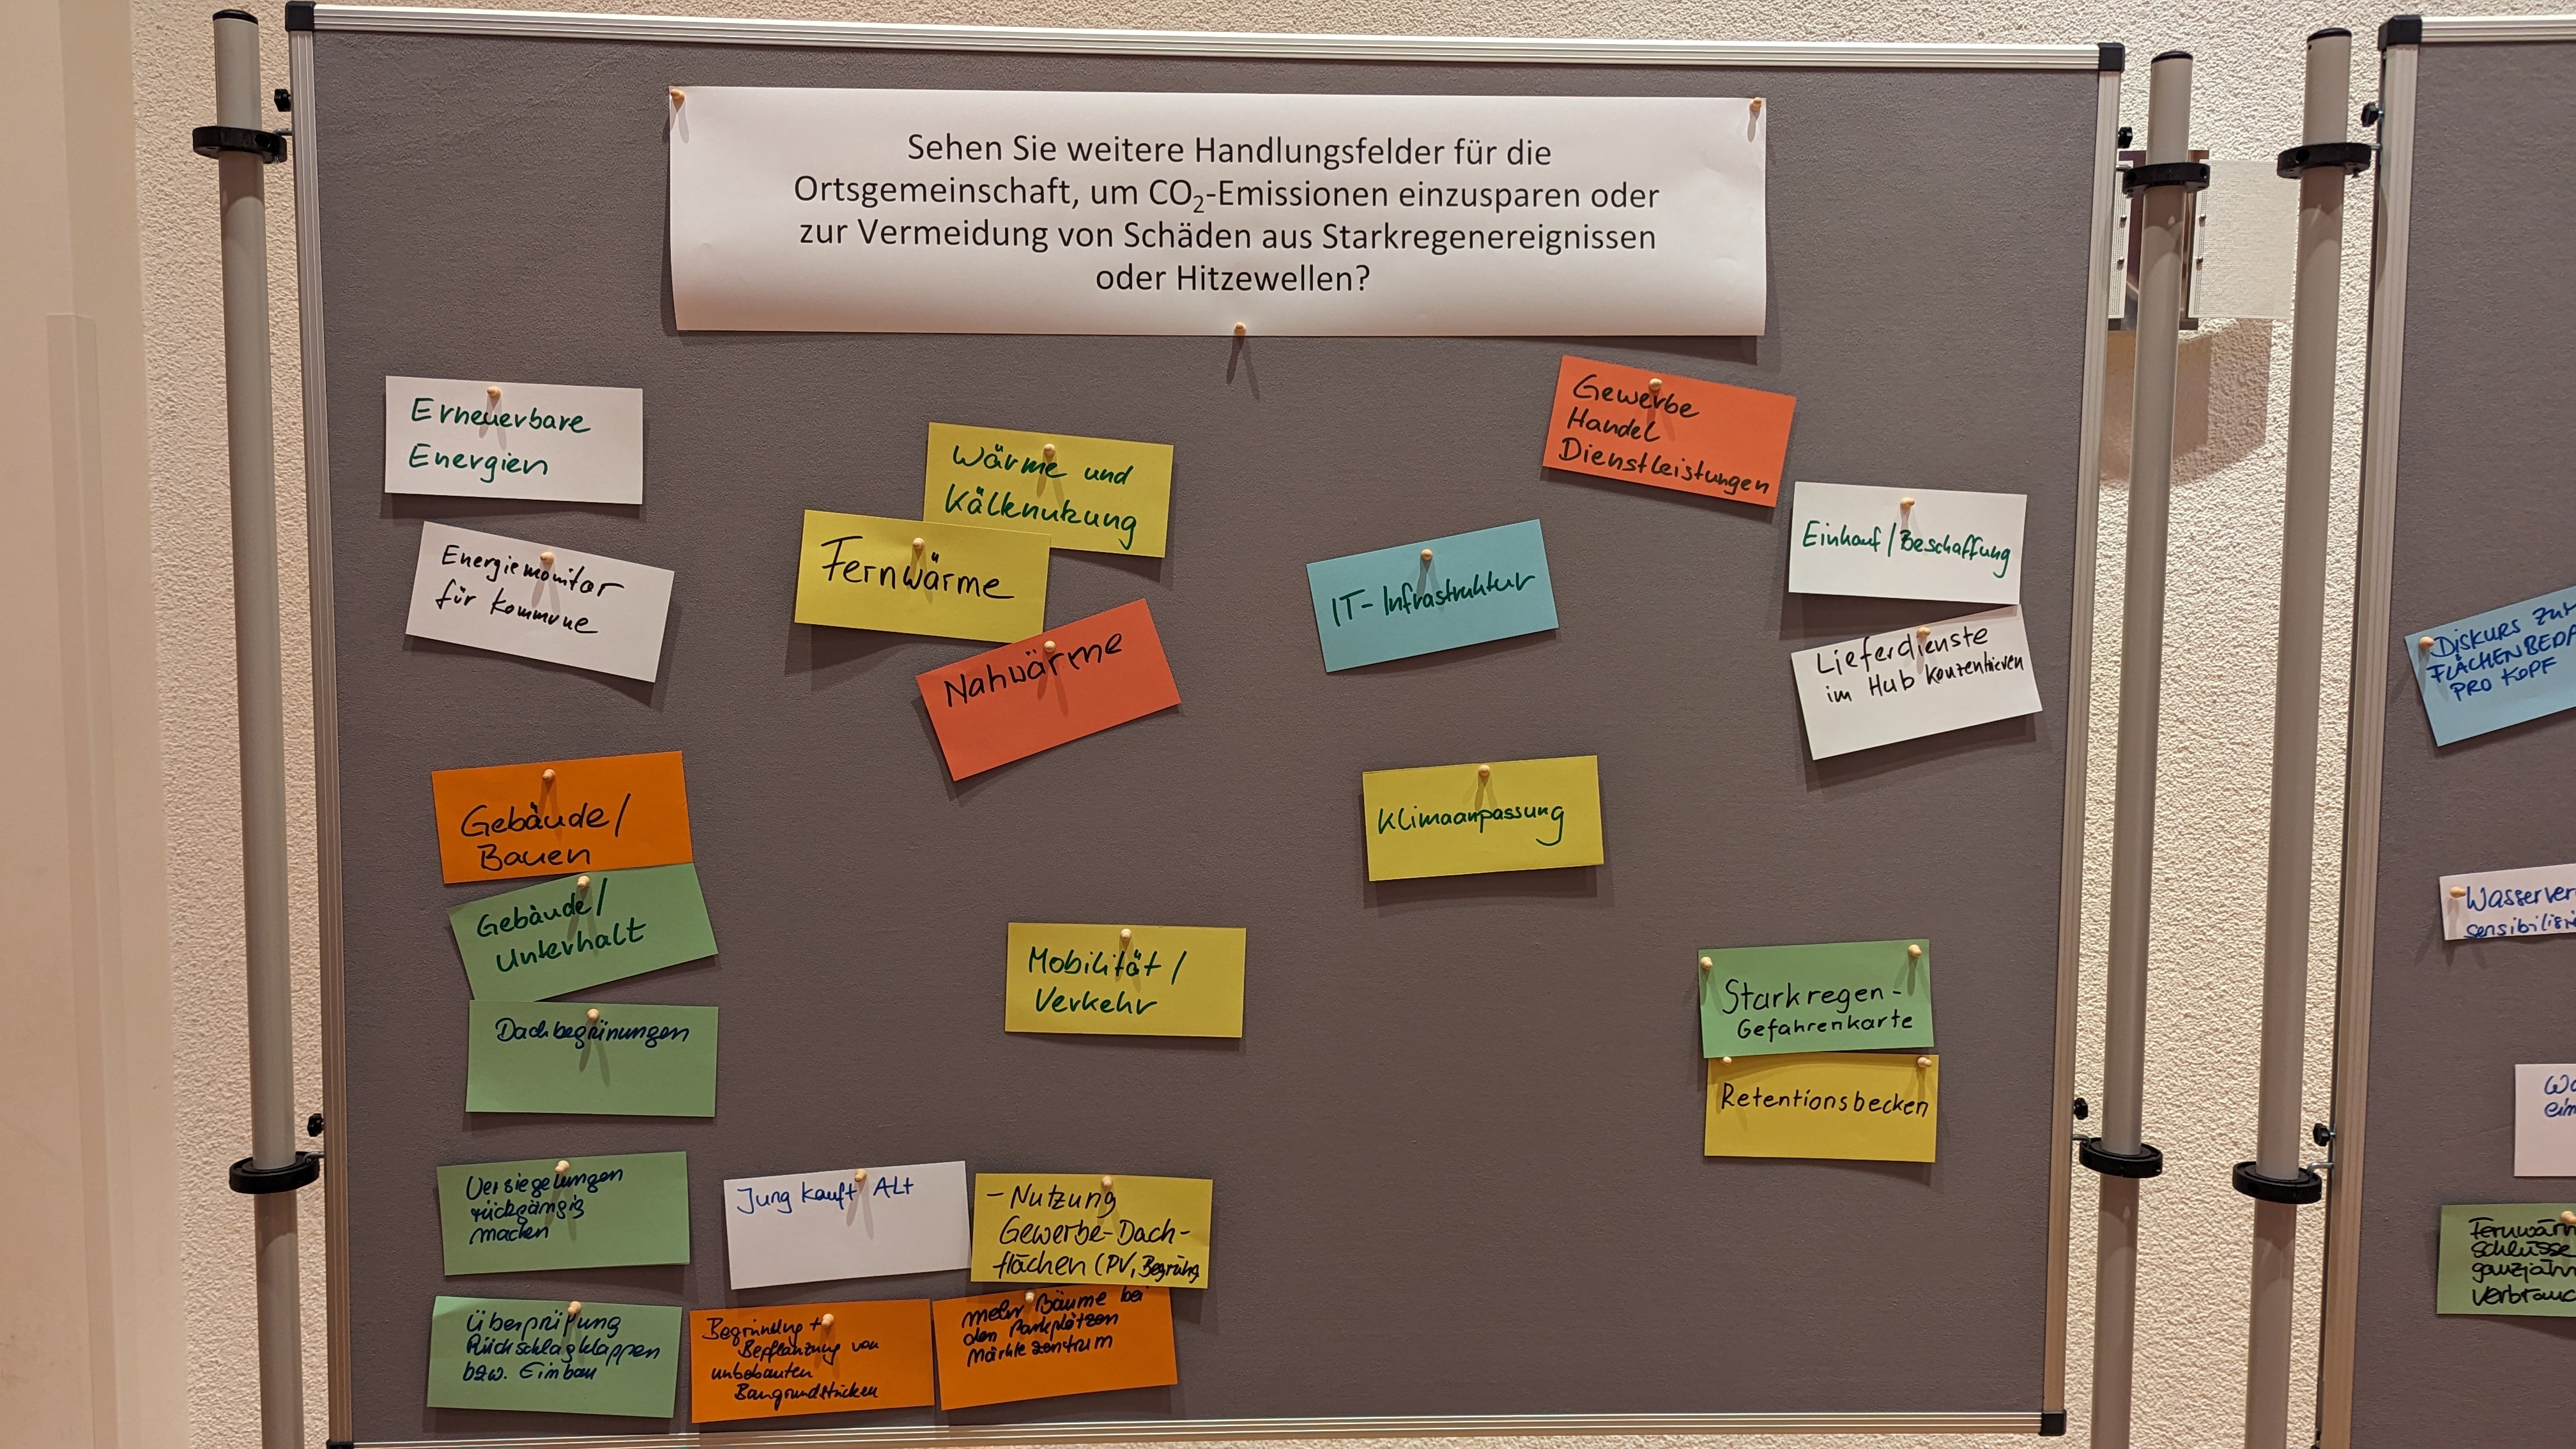 Sehen Sie weitere Handlungsfelder für die
Ortsgemeinschaft, um CO₂-Emissionen einzusparen oder
zur Vermeidung von Schäden aus Starkregenereignissen
oder Hitzewellen?
Erneuerbare
Energien
Energiemonitor
für Kommune
Wärme und
Kältenutzung
Fernwärme
Nahwärme
Gewerbe
Handel
Dienstleistungen
IT-Infrastruktur
Einkauf/Beschaffung
Lieferdienste
im Hub konzentrieren
Gebäude/
Bauen
Gebäude/
Unterhalt
Dachbegrünungen
Klimaanpassung
Mobilität/
Verkehr
Starkregen-
Gefahrenkarte
Retentionsbecken
Versiegelungen
rückgängig
machen
Jung kauft ALt
- Nutzung
Gewerbe-Dach-
flächen (PV, Begrünung
Überprüfung
Rückschlagklappen
bzw. Einbau
Begrünung +
Bepflanzung von
unbebauten
Baugrundstücken
mehr Bäume bei
den Parkplätzen
Märktezentrum
Diskurs
FLÄCHENBEDA
PRO KOPF
Wasserver
sensibilisi
Fernwärm
schlüsse
ganzjähr
verbrauc